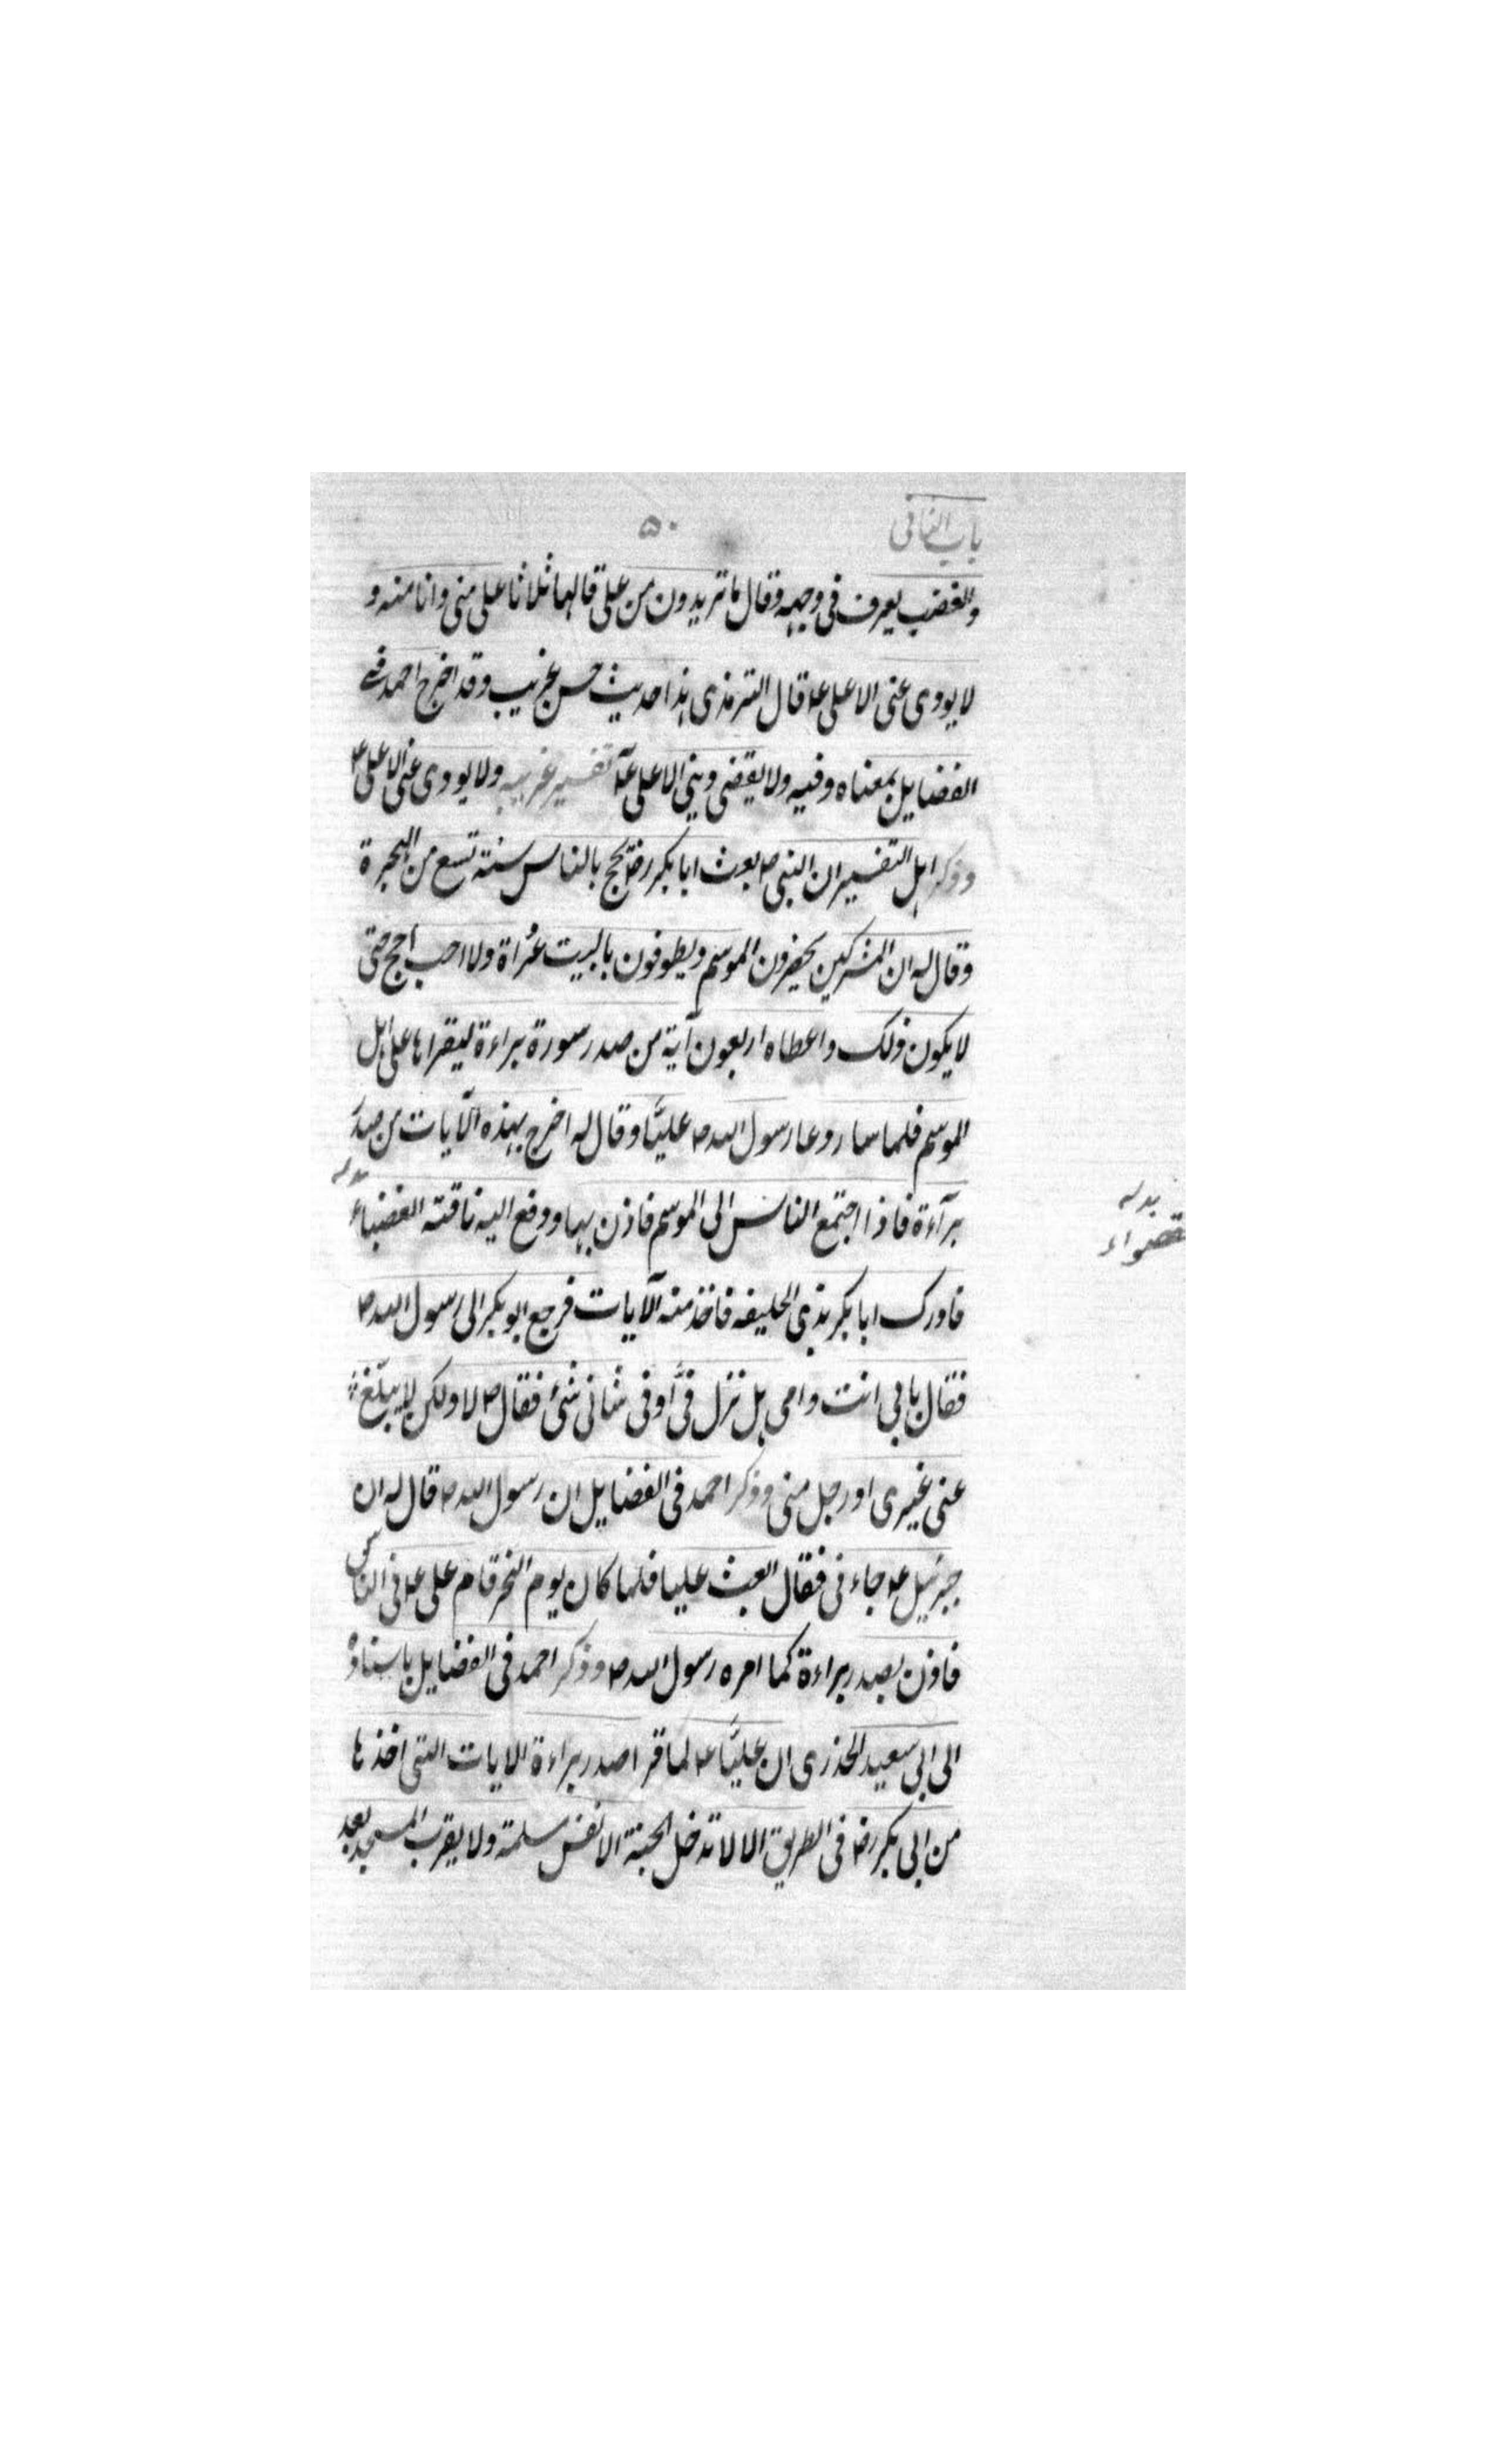 باب الثانی
۵۰
والغضب یعرف فی وجهه وقال ما تریدون من علی قالها ثلاثا علی منی وانا منه و
لا یودی عنی الا علی ع قال الترمذی هذا حدیث حسن غریب وقد اخرج احمد فی
الفضایل بمعناه وفیه ولا یقضی دینی الا علی ع تفسیر غریبه ولا یودی عنی الا علی ع
وذکر اهل التفسیر ان النبی ص بعث ابا بکر رض یحج بالناس سنة تسع من الهجرة
وقال له ان المشرکین یحضرون الموسم ویطوفون بالبیت عُراة ولا احب احج حتی
لا یکون ذلک واعطاه اربعون آیة من صدر سورة براءة لیقراها علی اهل
الموسم فلما سار دعا رسول الله ص علیًّا وقال له اخرج بهذه الآیات من صدر
برآءة فاذا اجتمع الناس الی الموسم فاذن بها ودفع الیه ناقته العضباء
فادرک ابا بکر بذی الحلیفه فاخذ منه الآیات فرجع ابو بکر الی رسول الله ص
فقال بابی انت وامی هل نزل فیَّ او فی شانی شئ فقال ص لا ولکن لا یبلّغ
عنی غیری او رجل منی وذکر احمد فی الفضایل ان رسول الله ص قال له ان
جبرئیل ع جاءنی فقال ابعث علیا فلما کان یوم النحر قام علی ع فی الناس
فاذن بصدر براءة کما امره رسول الله ص وذکر احمد فی الفضایل باسناده
الی ابی سعید الخدری ان علیًّا ع لما قرا صدر براءة الایات التی اخذها
من ابی بکر رض فی الطریق الا لا تدخل الجنة الا نفس مسلمة ولا یقرب المسجد بعد